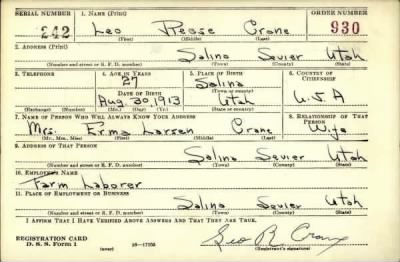 SERIAL NUMBER 1. NAME (Print) ORDER NUMBER
242 Leo Reese Crane 930
(First) (Middle) (Last)
2. ADDRESS (Print)
Salina Sevier Utah
(Number and street or R. F. D. number) (Town) (County) (State)
3. TELEPHONE 4. AGE IN YEARS 5. PLACE OF BIRTH 6. COUNTRY OF CITIZENSHIP
27 Salina
DATE OF BIRTH (Town or county)
Aug 30, 1913 Utah U.S.A
(Exchange) (Number) (Mo.) (Day) (Yr.) (State or country)
7. NAME OF PERSON WHO WILL ALWAYS KNOW YOUR ADDRESS 8. RELATIONSHIP OF THAT PERSON
Mrs. Erma Larsen Crane Wife
(Mr., Mrs., Miss) (First) (Middle) (Last)
9. ADDRESS OF THAT PERSON
Salina Sevier Utah
(Number and street or R. F. D. number) (Town) (County) (State)
10. EMPLOYER'S NAME
Farm Laborer
11. PLACE OF EMPLOYMENT OR BUSINESS
Salina Sevier Utah
(Number and street or R. F. D. number) (Town) (County) (State)
I AFFIRM THAT I HAVE VERIFIED ABOVE ANSWERS AND THAT THEY ARE TRUE.
REGISTRATION CARD
D. S. S. Form 1 (over) 16-17105 Leo R Crane
(Registrant's signature)